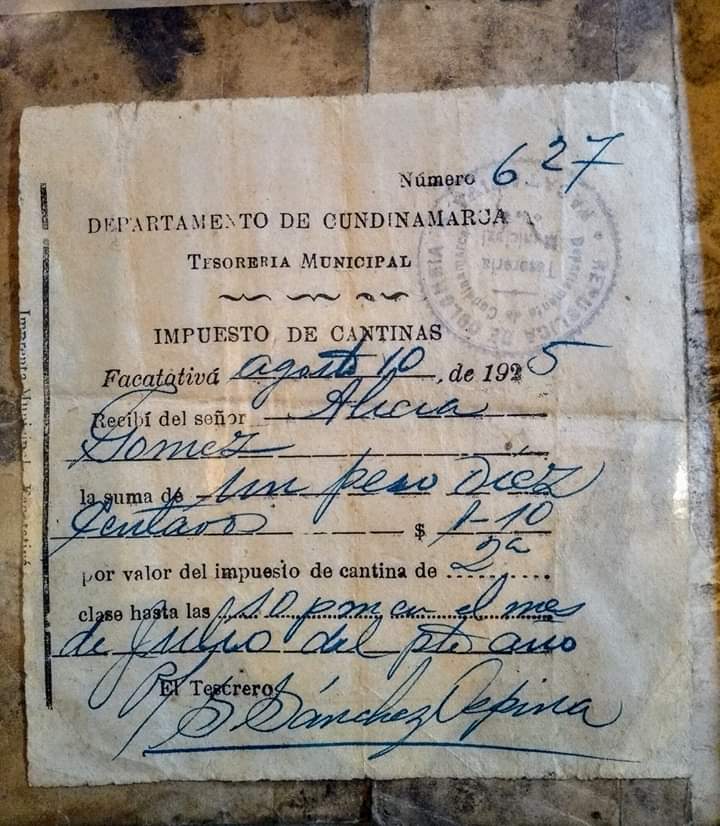 Número 627
DEPARTAMENTO DE CUNDINAMARCA
TESORERIA MUNICIPAL
IMPUESTO DE CANTINAS
Facatativá agosto 10, de 1925
Recibí del señor Alicia
Gomez
la suma de Un peso Diez
Centavos $ 1-10
por valor del impuesto de cantina de 2a
clase hasta las 10 pm en el mes
de Junio del pte año
El Tesorero,
Sánchez Ospina
REPUBLICA DE COLOMBIA
Departamento de Cundinamarca
Tesoreria
Municipal
Imprenta Municipal